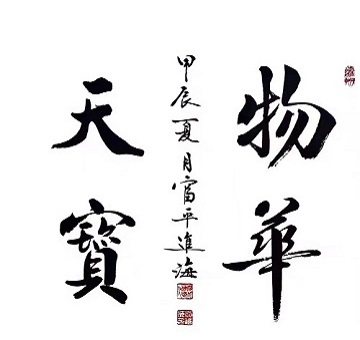 物華
天寶
甲辰夏月富平進海